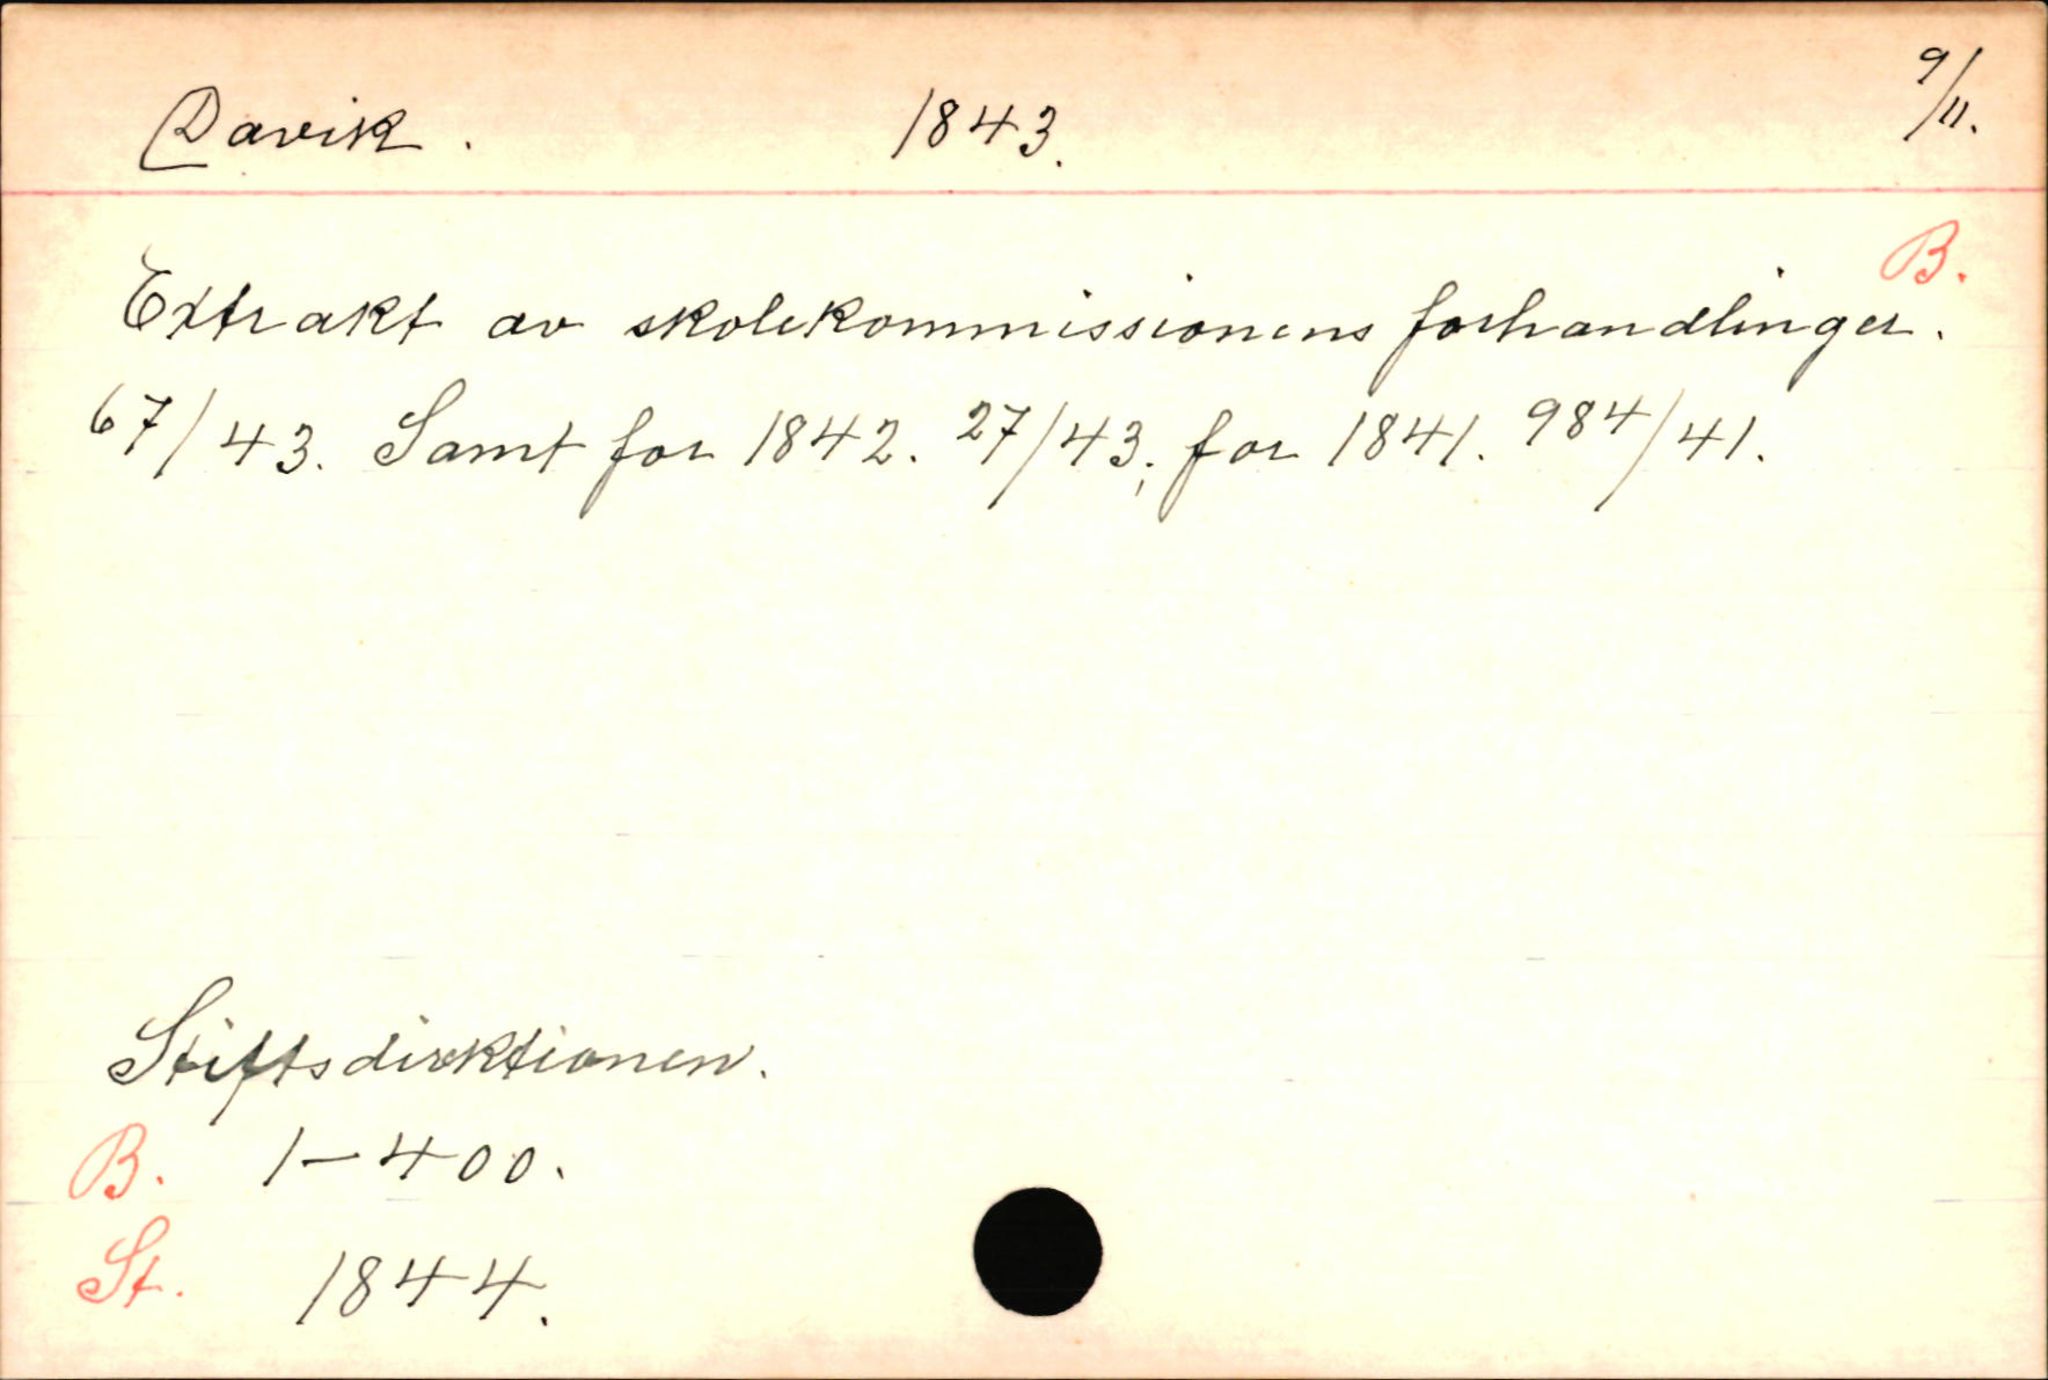 Davik. 1843. 9/11.
B.
Extrakt av skolekommissionens forhandlinger.
67/43. Samt for 1842. 27/43; for 1841. 984/41.
Stiftsdirektionen.
B. 1-400.
St. 1844.